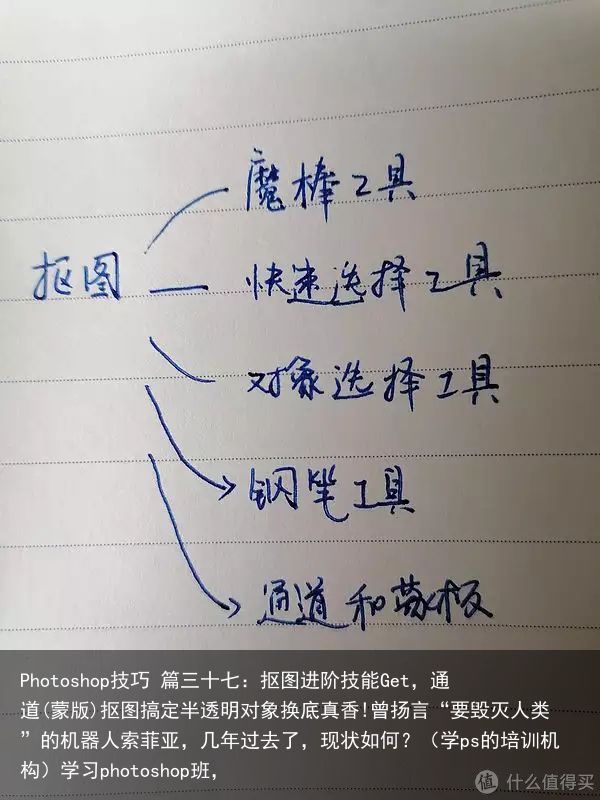 魔棒工具
抠图
快速选择工具
对象选择工具
钢笔工具
通道和蒙板
Photoshop技巧 篇三十七：抠图进阶技能Get，通
道(蒙版)抠图搞定半透明对象换底真香!曾扬言“要毁灭人类
”的机器人索菲亚，几年过去了，现状如何？（学ps的培训机
构）学习photoshop班，
值 什么值得买